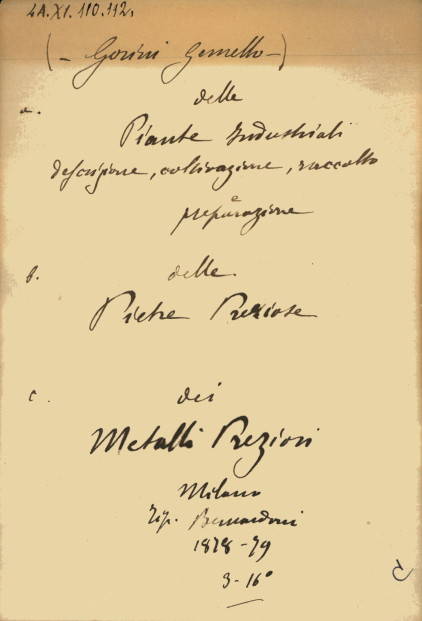 4A.XI.110.112.
(- Gorini Gemello -)
a. delle
Piante Industriali
descrizione, coltivazione, raccolto
e
preparazione
b. delle
Pietre Preziose
c. dei
Metalli Preziosi
Milano
Tip. Bernardoni
1878-79
3-16°